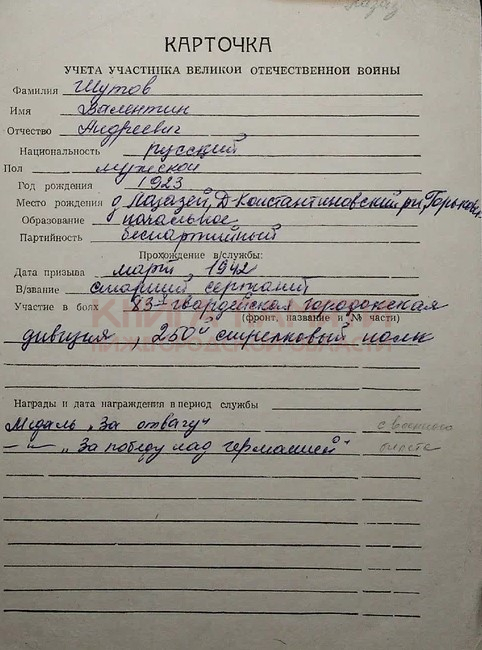 КАРТОЧКА
УЧЕТА УЧАСТНИКА ВЕЛИКОЙ ОТЕЧЕСТВЕННОЙ ВОЙНЫ
Фамилия Шутов
Имя Валентин
Отчество Андреевич
Национальность русский
Пол мужской
Год рождения 1923
Место рождения д. Лазазей, Д-Константиновский р-н, Горьков.
Образование начальное
Партийность беспартийный
Прохождение в/службы:
Дата призыва март, 1942
В/звание старший сержант
Участие в боях 83я гвардейская городокская
(фронт, название и № части)
дивизия, 250й стрелковый полк
КНИГА ПАМЯТИ
НИЖЕГОРОДСКОЙ ОБЛАСТИ
Награды и дата награждения в период службы
Медаль „За отвагу" с военного
—"— „За победу над германией" билета